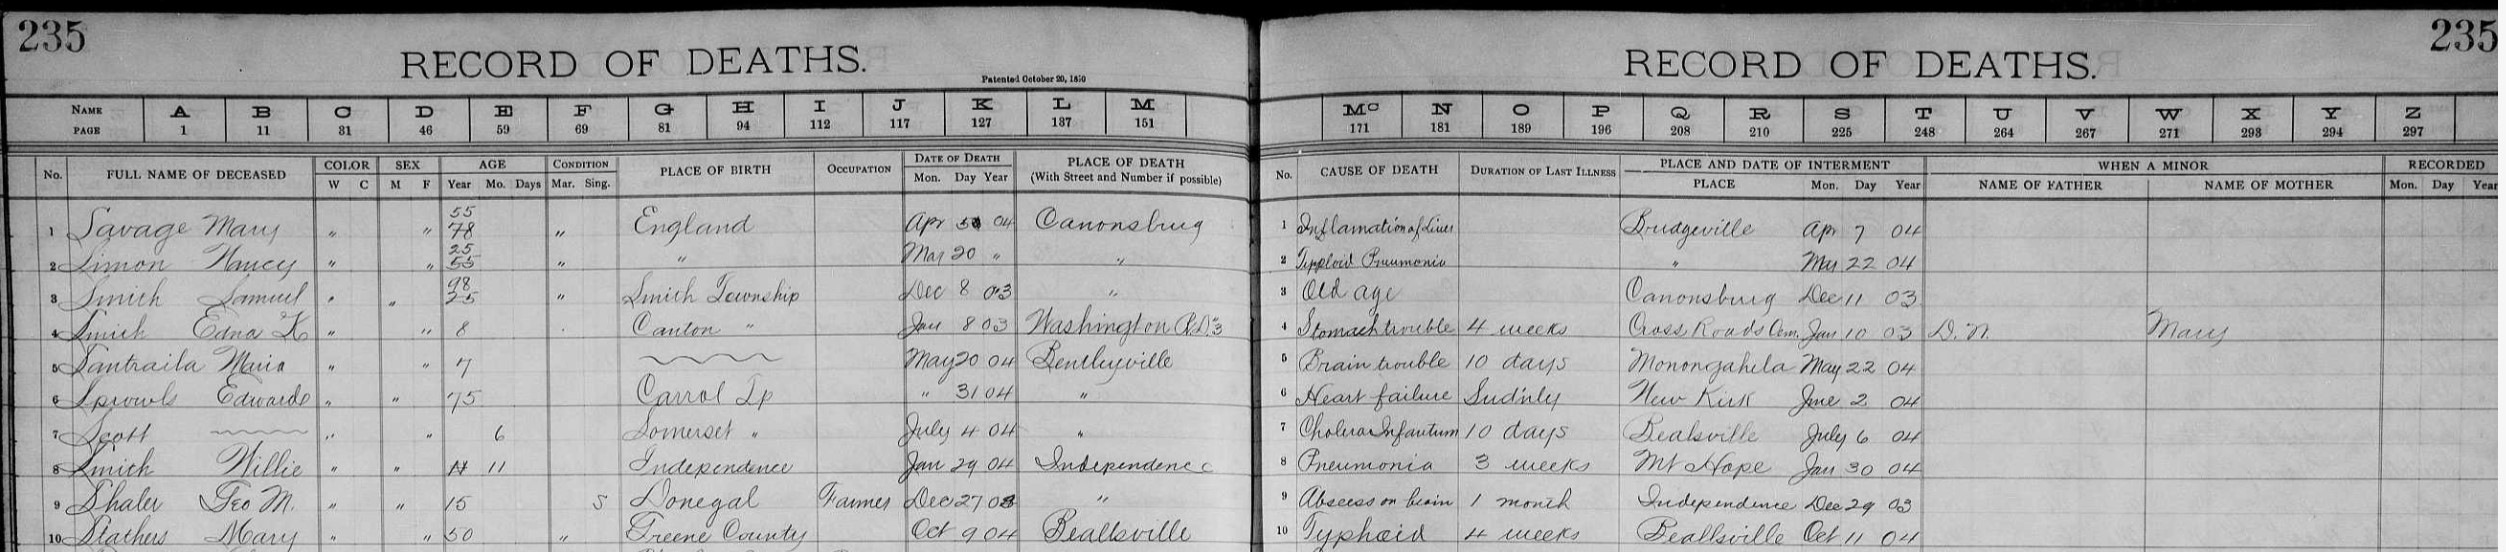 235 235
RECORD OF DEATHS. RECORD OF DEATHS.
Patented October 20, 1850
NAME A B C D E F G H I J K L M Mc N O P Q R S T U V W X Y Z
PAGE 1 11 31 46 59 69 81 94 112 117 127 137 151 171 181 189 196 208 210 225 248 264 267 271 293 294 297
No. FULL NAME OF DECEASED COLOR W C SEX M F AGE Year Mo. Days CONDITION Mar. Sing. PLACE OF BIRTH OCCUPATION DATE OF DEATH Mon. Day Year PLACE OF DEATH (With Street and Number if possible) No. CAUSE OF DEATH DURATION OF LAST ILLNESS PLACE AND DATE OF INTERMENT PLACE Mon. Day Year WHEN A MINOR NAME OF FATHER NAME OF MOTHER RECORDED Mon. Day Year
1 Savage Mary " " 55 78 " England Apr 5 04 Canonsburg 1 Inflamation of Liver Bridgeville Apr 7 04
2 Simon Nancy " " 25 55 " " Mar 20 " " 2 Typhoid Pneumonia " Mar 22 04
3 Smith Samuel " " 98 25 " Smith Township Dec 8 03 " 3 Old age Canonsburg Dec 11 03
4 Smith Edna K " " 8 Canton " Jan 8 03 Washington R.D. 3 4 Stomach trouble 4 weeks Cross Roads Cem. Jan 10 03 D. N. Mary
5 Santraila Maria " " 7 May 20 04 Bentleyville 5 Brain trouble 10 days Monongahela May 22 04
6 Sprowls Edward " " 75 Carrol Tp " 31 04 " 6 Heart failure Sud'nly New Kirk June 2 04
7 Scott " " 6 Somerset " July 4 04 " 7 Cholera Infantum 10 days Bealsville July 6 04
8 Smith Willie " " 11 Independence Jan 29 04 Independence 8 Pneumonia 3 weeks Mt Hope Jan 30 04
9 Shaler Geo M. " " 15 S Donegal Farmer Dec 27 03 " 9 Abscess on brain 1 month Independence Dec 29 03
10 Stathers Mary " " 50 " Greene County Oct 9 04 Beallsville 10 Typhoid 4 weeks Beallsville Oct 11 04